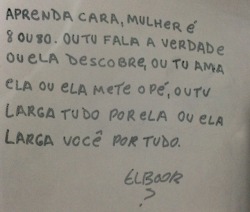 APRENDA CARA, MULHER É
8 OU 80. OU TU FALA A VERDADE
OU ELA DESCOBRE, OU TU AMA
ELA OU ELA METE O PÉ, OU TU
LARGA TUDO POR ELA OU ELA
LARGA VOCÊ POR TUDO.
ELBOOR
?